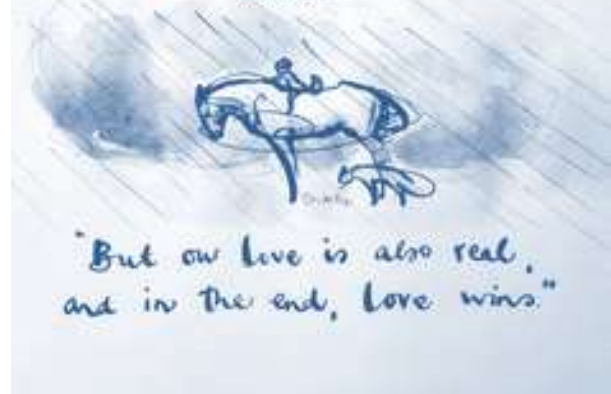 "But our love is also real,
and in the end, love wins."